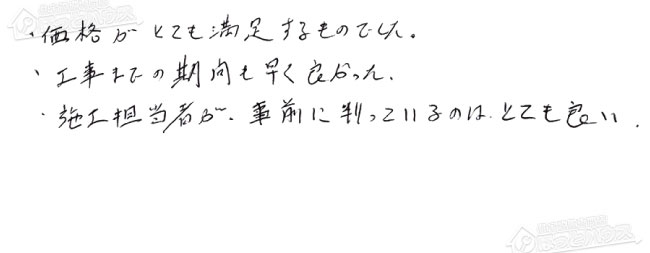 ・価格がとても満足するものでした。
・工事までの期間も早く良かった.
・施工担当者が、事前に判っているのは、とても良い.